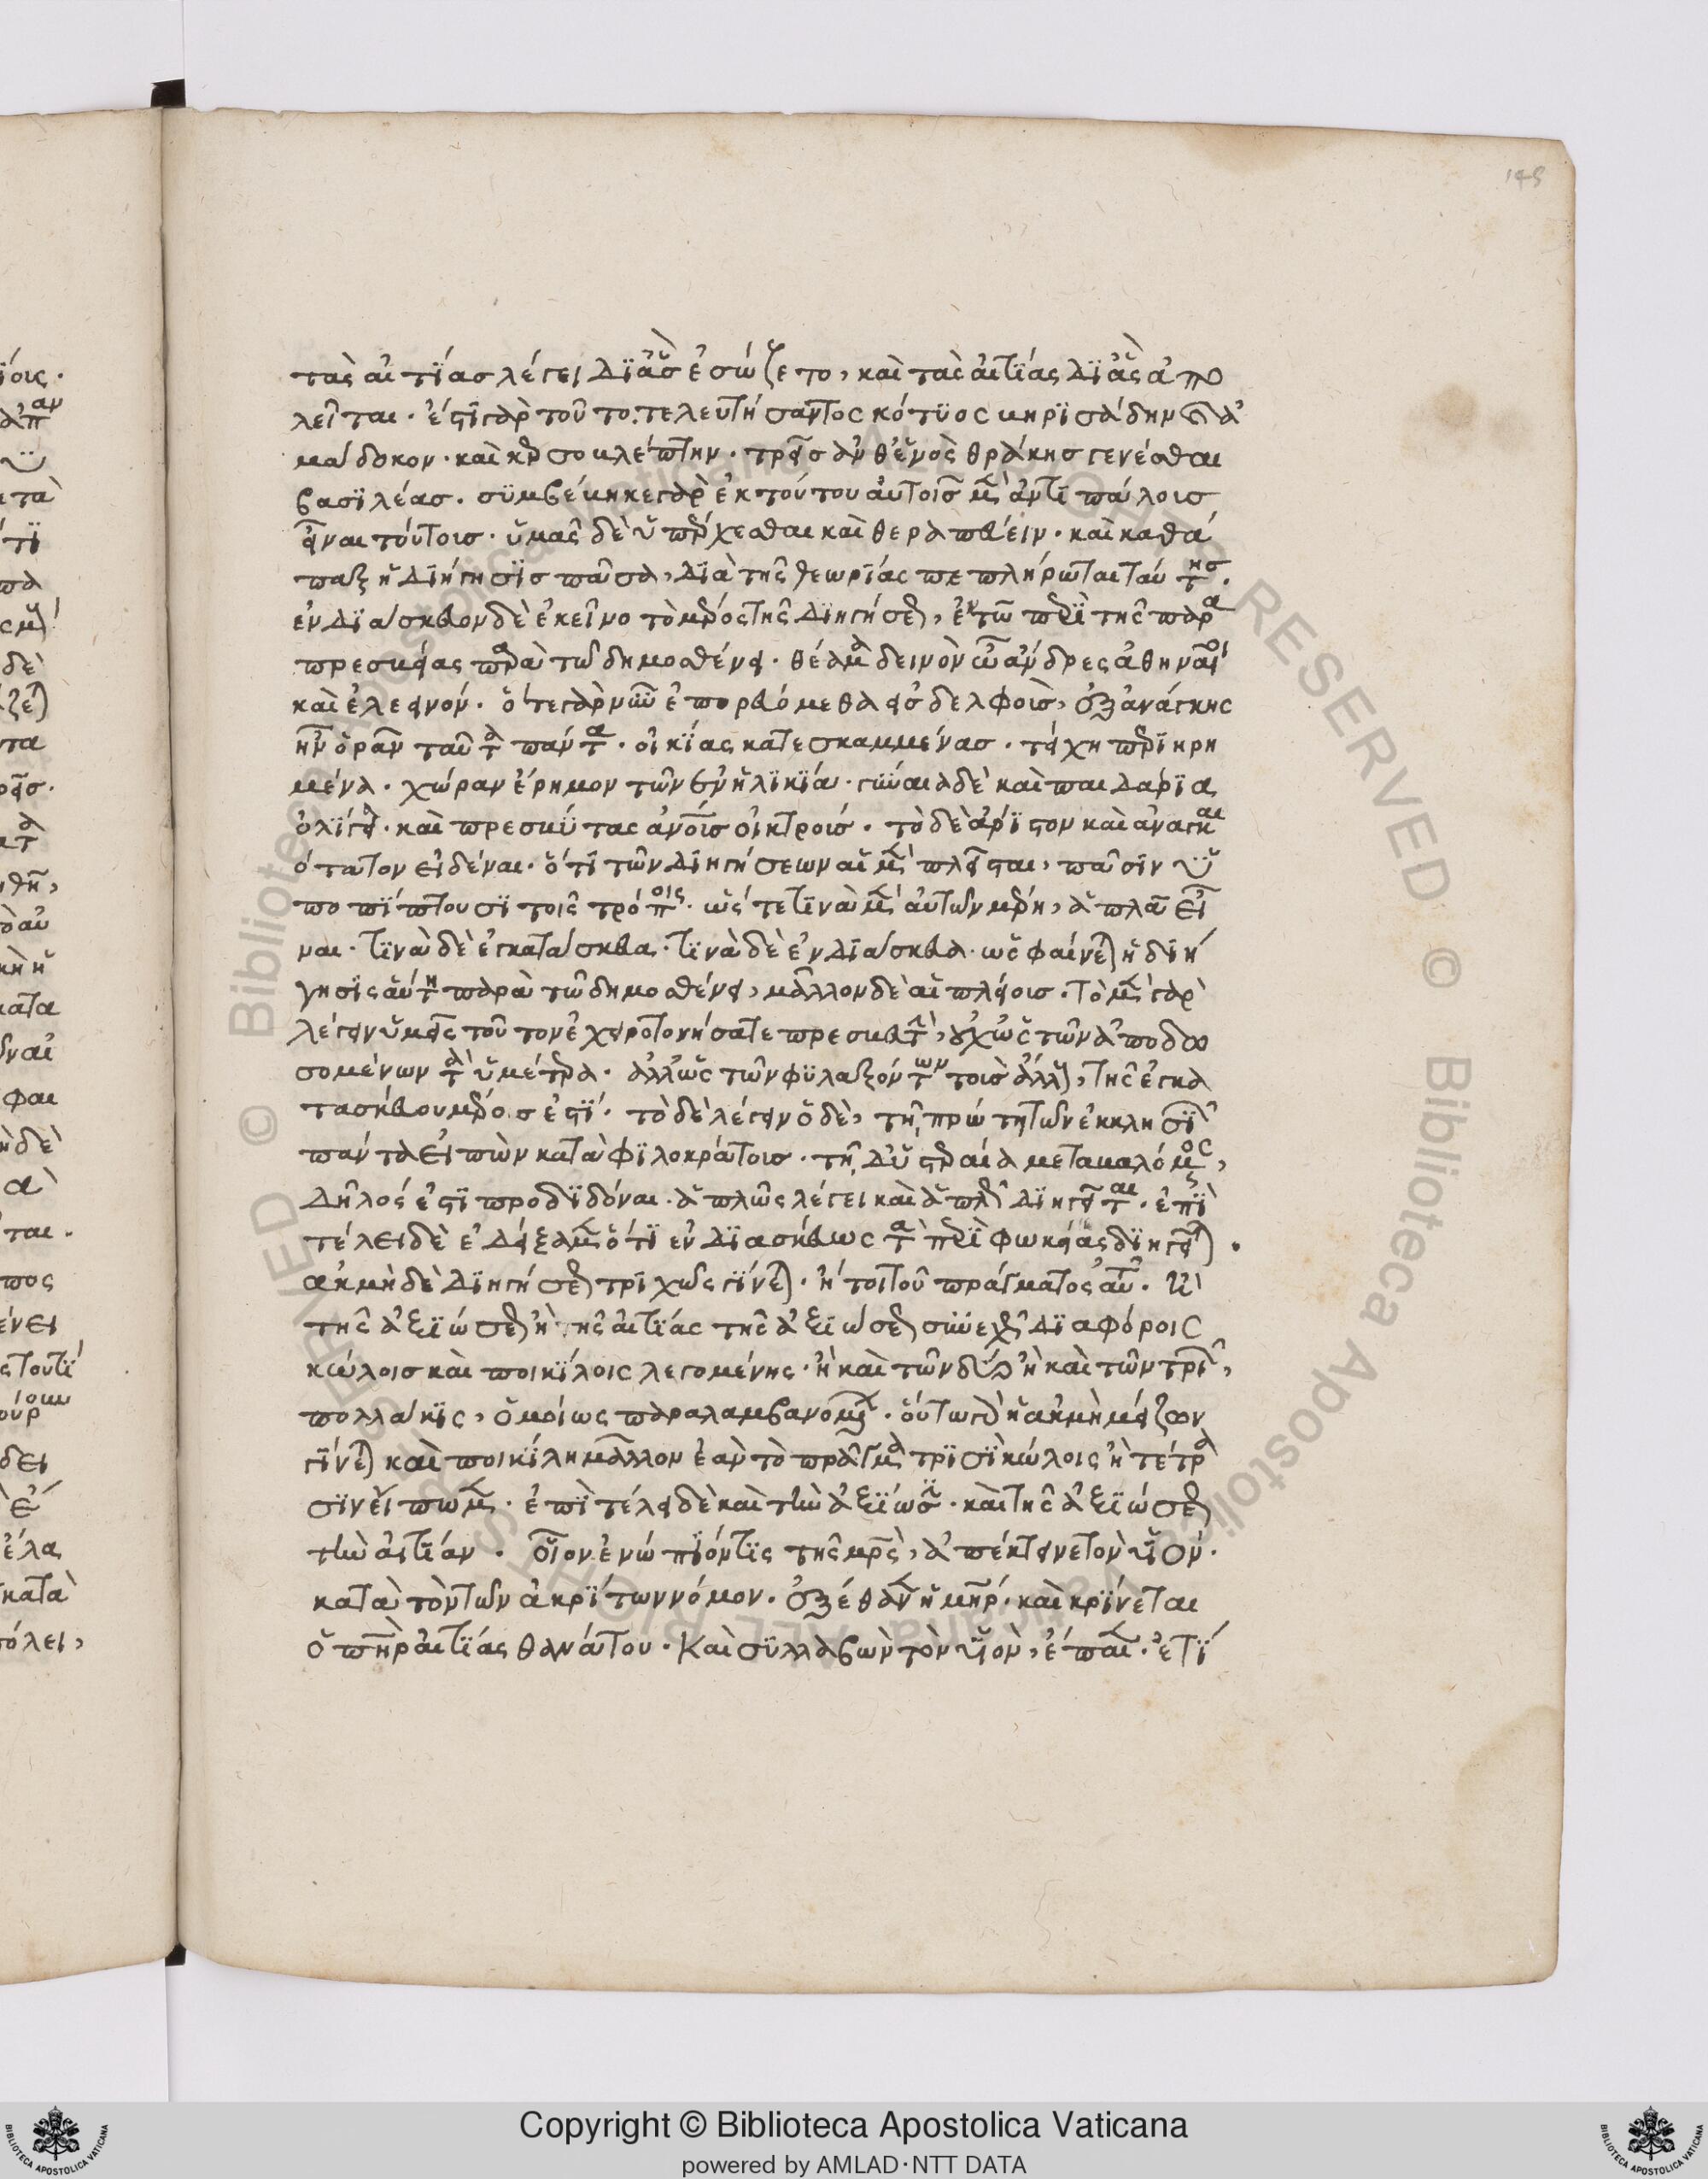 145
τὰς αἰτίας λέγει δι' ἃς ἐσώζετο, καὶ τὰς αἰτίας δι' ἃς ἀπο
λεῖται. ἔστι γὰρ τοῦτο. τελευτήσαντος κότυος κηρισάδην καὶ ἀ
μάδοκον. καὶ κερσοβλέπτην. τρεῖς ἀνθ' ἑνὸς θράκης γενέσθαι
βασιλέας. συμβέβηκε γὰρ ἐκ τούτου αὐτοῖς μὲν ἀντιπάλοις
εἶναι τούτοις. ὑμᾶς δὲ ὑπέρχεσθαι καὶ θεραπεύειν. καὶ καθά
παξ ἡ διήγησις πᾶσα, διὰ τῆς θεωρίας πεπλήρωται ταύτης.
ἐνδιάσκευον δὲ ἐκεῖνο τὸ μέρος τῆς διηγήσεως, ἐν τῶ περὶ τῆς παρα
πρεσβείας παρὰ τῶ δημοσθένει. θέαμα δεινὸν ὦ ἄνδρες ἀθηναῖοι
καὶ ἐλεεινόν. ὅτε γὰρ νῦν ἐπορευόμεθα εἰς δελφοὺς, ἐξ ἀνάγκης
ἦν ὁρᾶν ταῦτα πάντα. οἰκίας κατεσκαμμένας. τείχη περιηρη
μένα. χώραν ἔρημον τῶν ἐν ἡλικία. γύναια δὲ καὶ παιδάρια
ὀλίγα. καὶ πρεσβύτας ἀνθρώπους οἰκτρούς. τὸ δὲ ἄριστον καὶ ἀναγκαι
ότατον εἰδέναι. ὅτι τῶν διηγήσεων αἱ μὲν πλεῖσται, πᾶσιν ὑ
ποπίπτουσι τοῖς τρόποις. ὥστε τινὰ μὲν αὐτῶν μέρη, ἁπλᾶ εἶ
ναι. τινὰ δὲ ἐγκατάσκευα. τινὰ δὲ ἐνδιάσκευα. ὡς φαίνεται ἡ διή
γησις αὕτη παρὰ τῶ δημοσθένει, μᾶλλον δὲ αἱ πλείους. τὸ μὲν γὰρ
λέγειν ὑμεῖς τοῦτον ἐχειροτονήσατε πρεσβευτὴν, οὐχ ὡς τῶν ἀποδω
σομένων τὰ ὑμέτερα. ἀλλ' ὡς τῶν φυλαξόντων τοὺς ἄλλους, τῆς ἐγκα
τασκεύου μέρους ἐστί. τὸ δὲ λέγειν ὁ δὲ, τῆ πρώτη τῶν ἐκκλησιῶν
πάντα εἰπὼν κατὰ φιλοκράτους. τῆ δ' ὑστεραία μεταβαλόμενος,
δῆλός ἐστι προδιδόναι. ἁπλῶς λέγει καὶ ἁπλῶς διηγεῖται. ἐπὶ
τέλει δὲ ἐδείξαμεν ὅτι ἐνδιασκεύως τὰ περὶ φωκέας διηγεῖται.
ἀκμὴ δὲ διηγήσεως τριχῶς γίνεται. ἤτοι τοῦ πράγματος αὐτοῦ. καὶ
τῆς ἀξιώσεως ἢ τῆς αἰτίας τῆς ἀξιώσεως συνεχῶς διαφόροις
κώλοις καὶ ποικίλοις λεγομένης. ἢ καὶ τῶν δύο ἢ καὶ τῶν τριῶν,
πολλάκις, ὁμοίως παραλαμβανομένων. οὕτω γὰρ ἡ ἀκμὴ μείζων
γίνεται καὶ ποικίλη μᾶλλον ἐὰν τὸ πρᾶγμα τρισὶ κώλοις ἢ τέτρα
σιν εἴπωμεν. ἐπὶ τέλει δὲ καὶ τὴν ἀξίωσιν. καὶ τῆς ἀξιώσεως
τὴν αἰτίαν. οἷον ἐνώπιόν τις τῆς μητρὸς, ἀπέκτεινε τὸν υἱόν.
κατὰ τὸν τῶν ἀκρίτων νόμον. ἐξέθανεν ἡ μήτηρ. καὶ κρίνεται
ὁ πατὴρ αἰτίας θανάτου. καὶ συλλαβὼν τὸν υἱὸν, ἔπαιεν. ἔτι
Copyright © Biblioteca Apostolica Vaticana
powered by AMLAD·NTT DATA